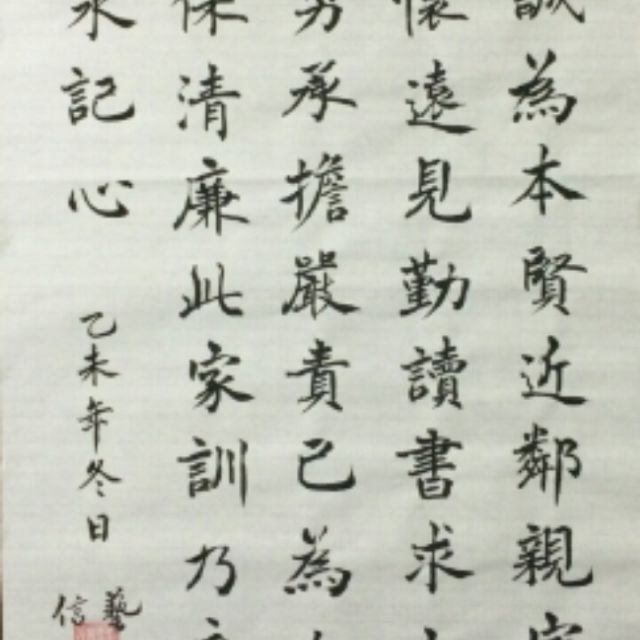 誠為本賢近鄰親
懷遠見勤讀書求
承擔嚴責己為
保清廉此家訓乃
永記心
乙未年冬日
藝信